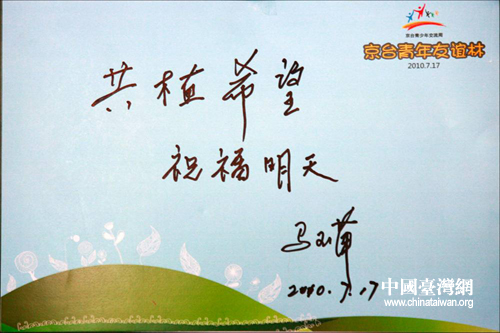 京台青少年交流周
京台青年友谊林
2010.7.17
共植希望
祝福明天
马
2010.7.17
中國臺灣網
www.chinataiwan.org